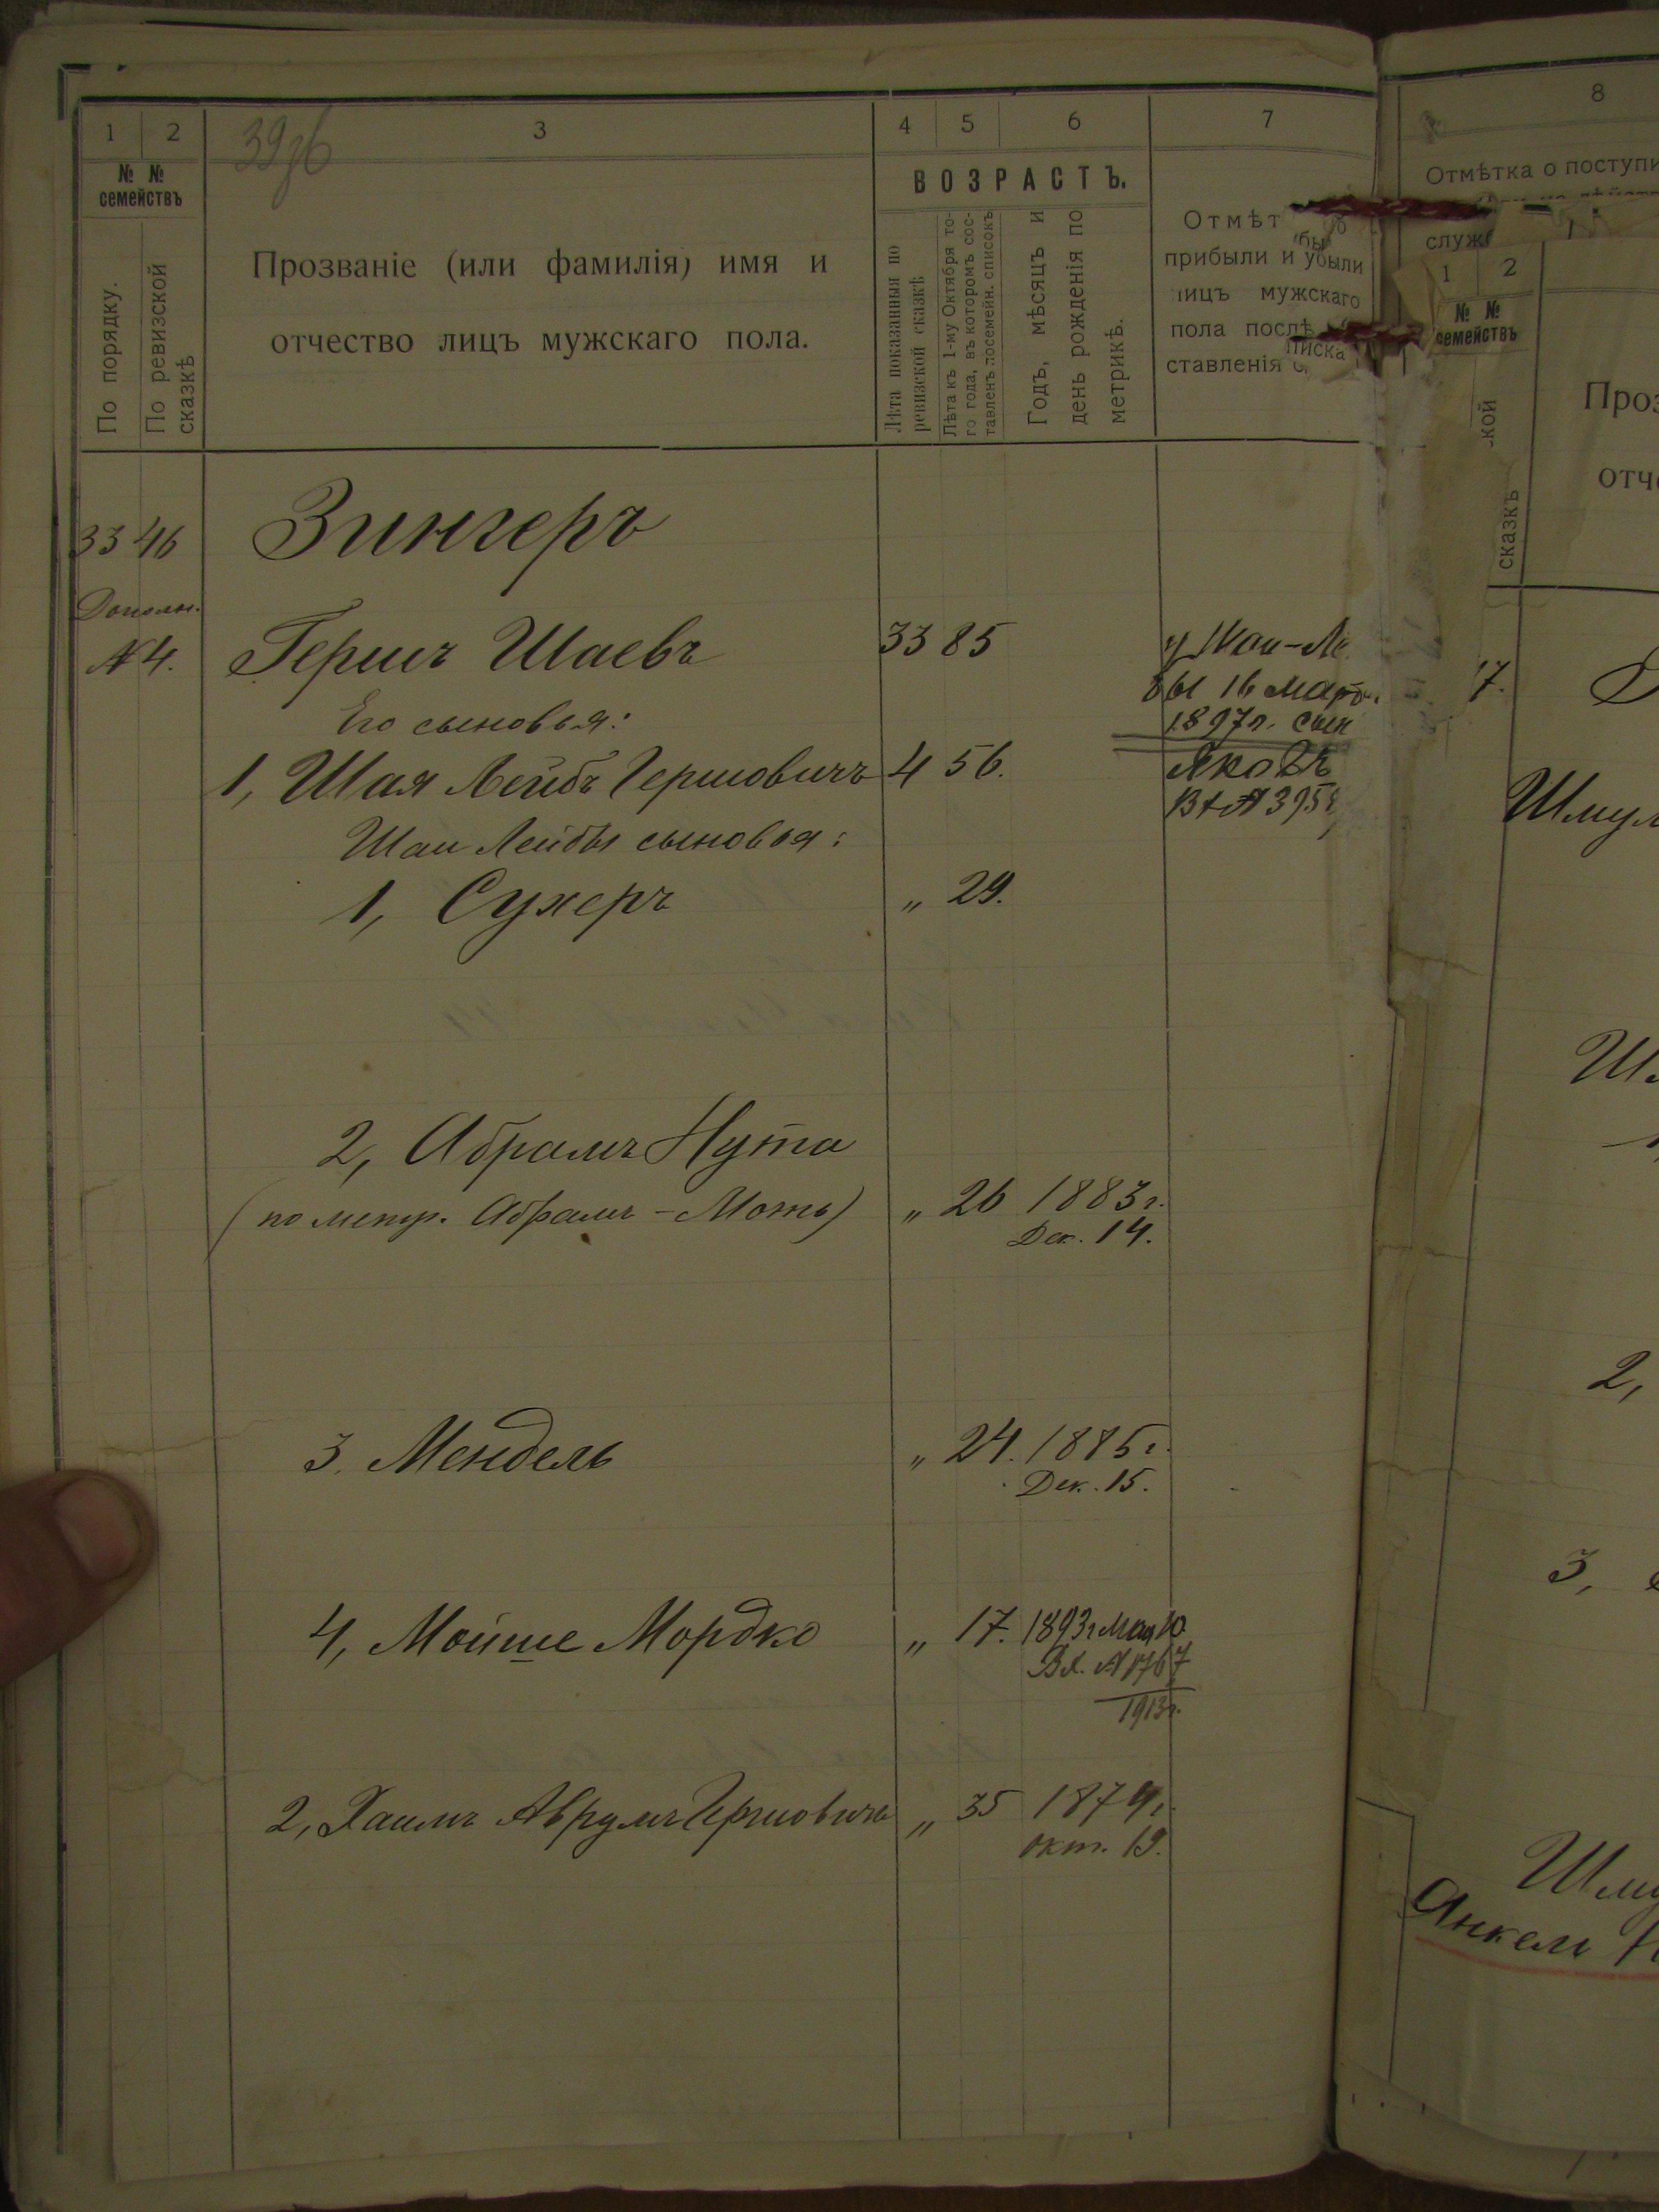 1 2 3 4 5 6 7
39
№ № семействъ
По порядку.
По ревизской сказкѣ
Прозваніе (или фамилія) имя и
отчество лицъ мужскаго пола.
ВОЗРАСТЪ.
Лѣта показанныя по
ревизской сказкѣ
Лѣта къ 1-му Октября то-
го года, въ которомъ сос-
тавленъ посемейн. списокъ
Годъ, мѣсяцъ и
день рожденія по
метрикѣ.
Отмѣт
прибыли и убыли
лицъ мужскаго
пола послѣ
ставленія
писка
33 46 Зингеръ
Дополн.
№ 4. Гершъ Шаевъ 33 85
Его сыновья:
1, Шая Лейбъ Гершовичъ 4 56.
Шаи Лейбы сыновья:
1, Сухеръ „ 29.
2, Абрамъ Нута
(по метр. Абрамъ-Моть) „ 26 1883 г.
Дек. 14.
3. Мендель „ 24. 1885 г.
Дек. 15.
4, Мойше Мордко „ 17. 1893 г Мая 10.
Вх. № 1767
1913 г.
2, Хаимъ Аврумъ Гершовичъ „ 35 1874 г.
окт. 19.
у Шаи-Ле
бы 16 март.
1897 г. сын
Яковъ
8
Отмѣтка о поступи
служ
1 2
№ №
семействъ
кой
сказкѣ
Проз
отче
7.
Шмул
Ш
2,
3,
Шму
Янкель